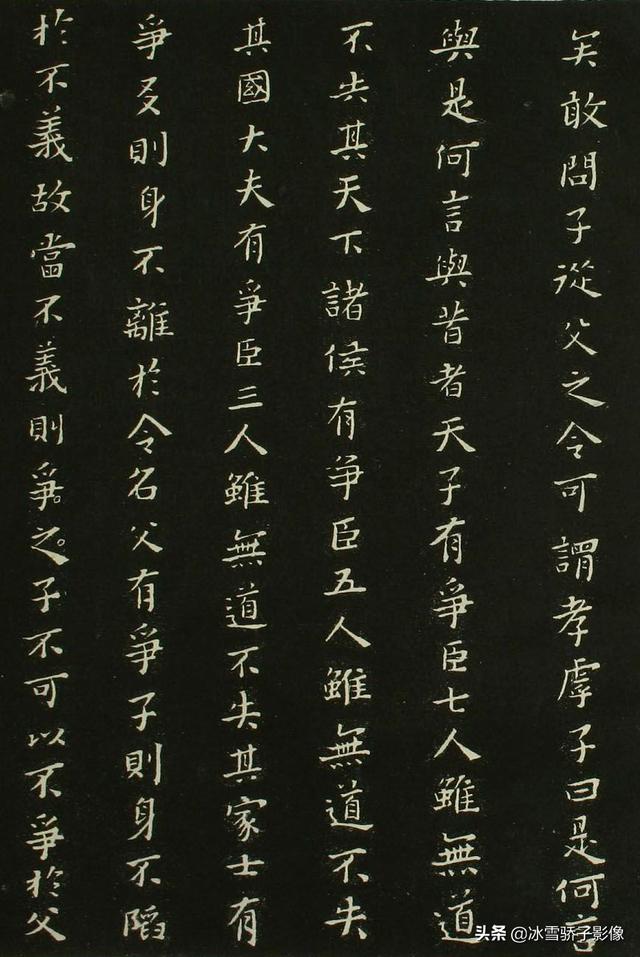 矣敢問子從父之令可謂孝虖子曰是何言
與是何言與昔者天子有爭臣七人雖無道
不失其天下諸侯有爭臣五人雖無道不失
其國大夫有爭臣三人雖無道不失其家士有
爭友則身不離於令名父有爭子則身不陷
於不義故當不義則爭之子不可以不爭於父
头条 @冰雪骄子影像